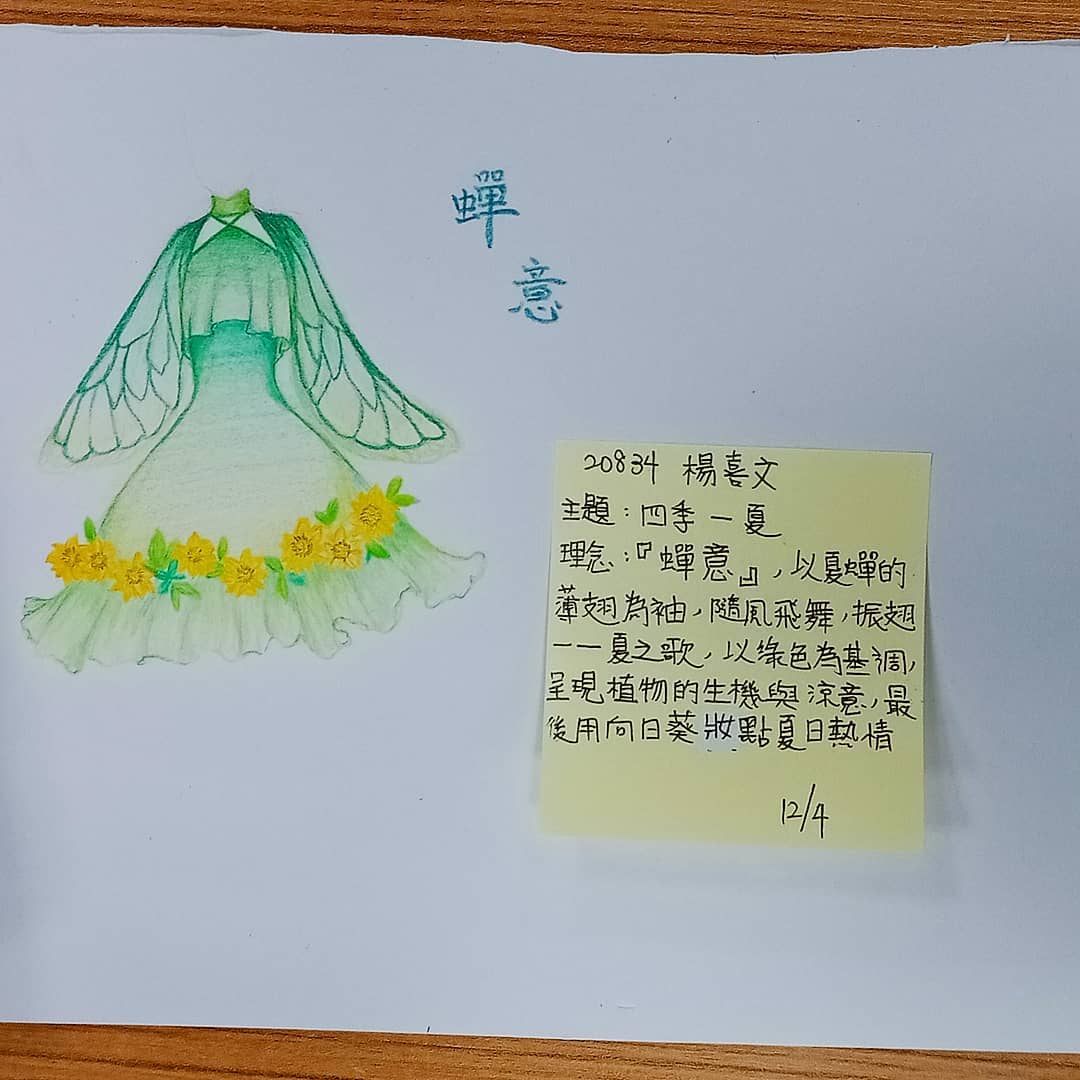 蟬
意
20834 楊喜文
主題：四季－夏
理念：『蟬意』，以夏蟬的
薄翅為袖，隨風飛舞，振翅
一一夏之歌，以綠色為基調，
呈現植物的生機與涼意，最
後用向日葵妝點夏日熱情
12/4